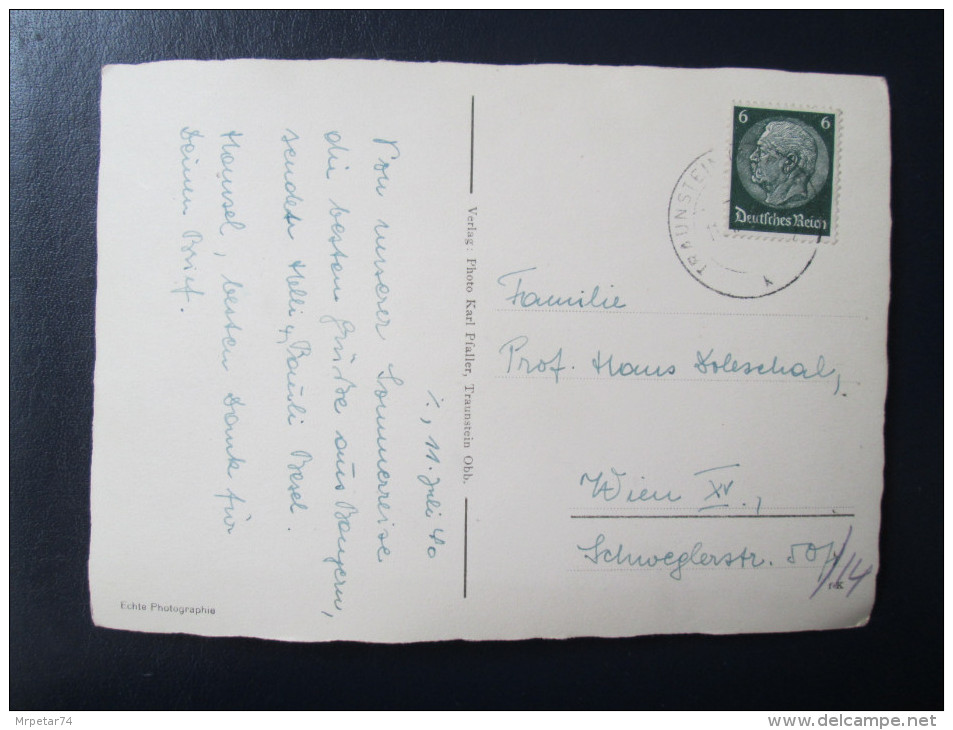 %, 11. Juli 40
Von unserer Sommerreise
die besten Grüße aus Bayern,
sendet Helli u. Pauli Besel.
Hansel, besten Dank für
Deinen Brief.
Echte Photographie
Verlag: Photo Karl Pfaller, Traunstein Obb.
6 6
Deutsches Reich
TRAUNSTEIN
Familie
Prof. Hans Doleschal,
Wien XV.,
Schweglerstr. 50/
/14
Mrpetar74
www.delcampe.net